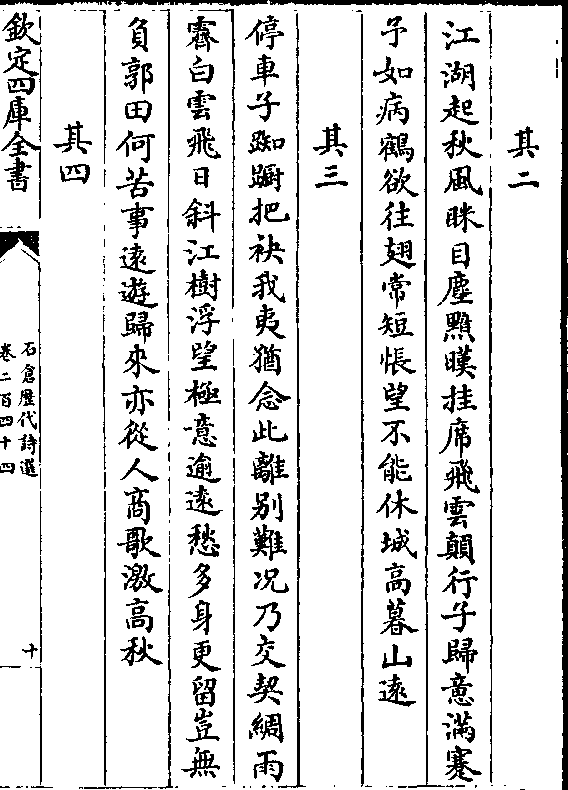 其二
江湖起秋風眯目塵黯暵挂席飛雲顛行子歸意滿蹇
予如病鶴欲往翅常短悵望不能休城高暮山遠
其三
停車子踟蹰把袂我夷猶念此離别難况乃交契綢雨
霽白雲飛日斜江樹浮望極意逾遠愁多身更留豈無
負郭田何苦事遠遊歸來亦從人商歌激高秋
其四
欽定四庫全書
石倉歷代詩選
卷二百四十四
十